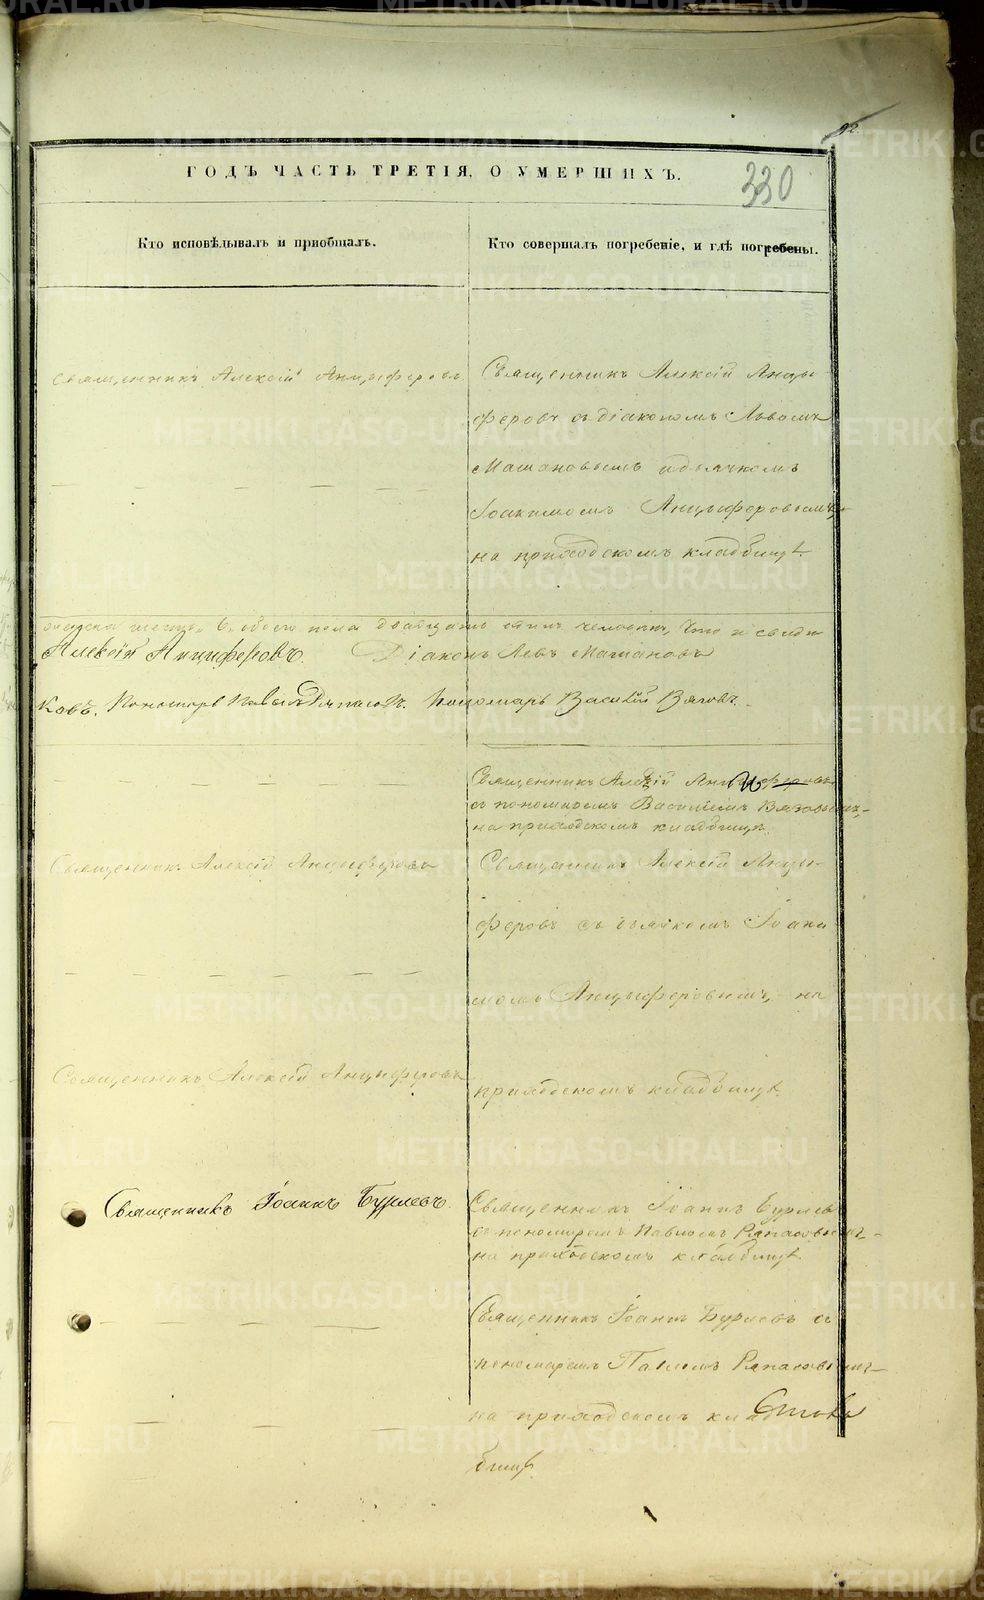 92.
ГОДЪ ЧАСТЬ ТРЕТІЯ, О УМЕРШИХЪ.
330
Кто исповѣдывалъ и приобщалъ.
Кто совершалъ погребеніе, и гдѣ погребены.
Священникъ Алексій Анцыферовъ
Священникъ Алексій Анцы-
феровъ съ діакономъ Львомъ
Машановымъ и дьячкомъ
Іоакимомъ Анцыферовымъ,
на приходскомъ кладбищѣ.
обоего пола двадцать человѣкъ, Что и свиди
Алексій Анциферовъ. Діаконъ Левъ Машановъ
ковъ. Пономарь Павелъ Пономарь Василій Вяговъ.
Священникъ Алексій
съ пономаремъ Василіемъ
на приходскомъ кладбищѣ.
Священникъ Алексій Анцыферовъ
Священникъ Алексій Анцы-
феровъ съ дьячкомъ Іоаки
момъ Анцыферовымъ, на
Священникъ Алексій Анцыферовъ
приходскомъ кладбищѣ.
Священникъ Іоаннъ Бурлевъ.
Священникъ Іоаннъ Бурлевъ
съ пономаремъ Павломъ
на приходскомъ кладбищѣ
Священникъ Іоаннъ Бурлевъ съ
пономаремъ Павломъ
на приходскомъ клад
бищѣ
METRIKI.GASO-URAL.RU